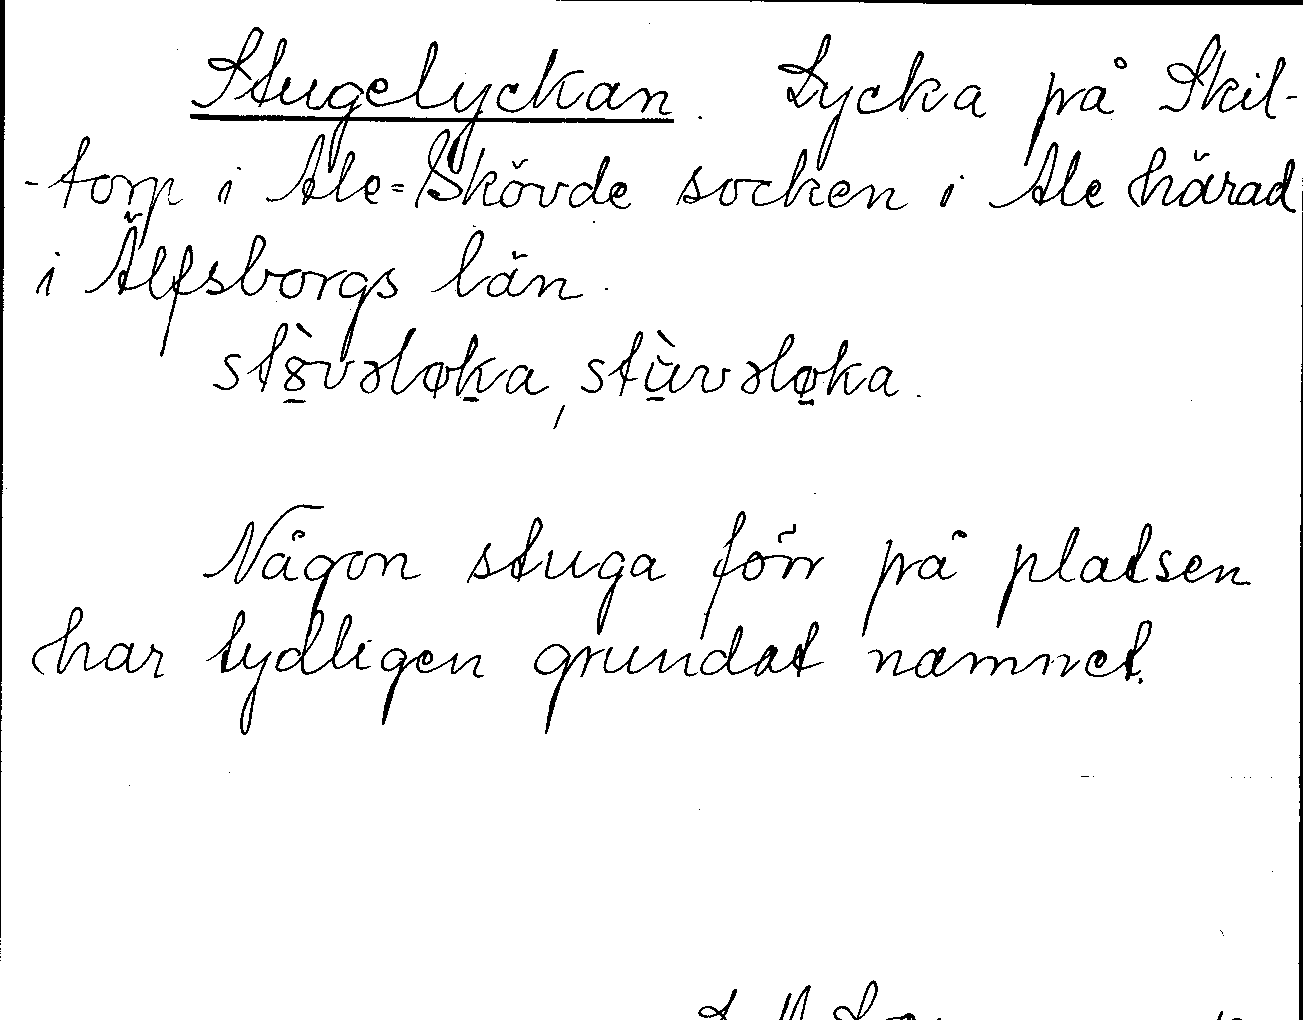 Stugelyckan. Lycka på Skil-
-torp i Ale=Skövde socken i Ale härad
i Älfsborgs län.
Någon stuga förr på platsen
har tydligen grundat namnet.